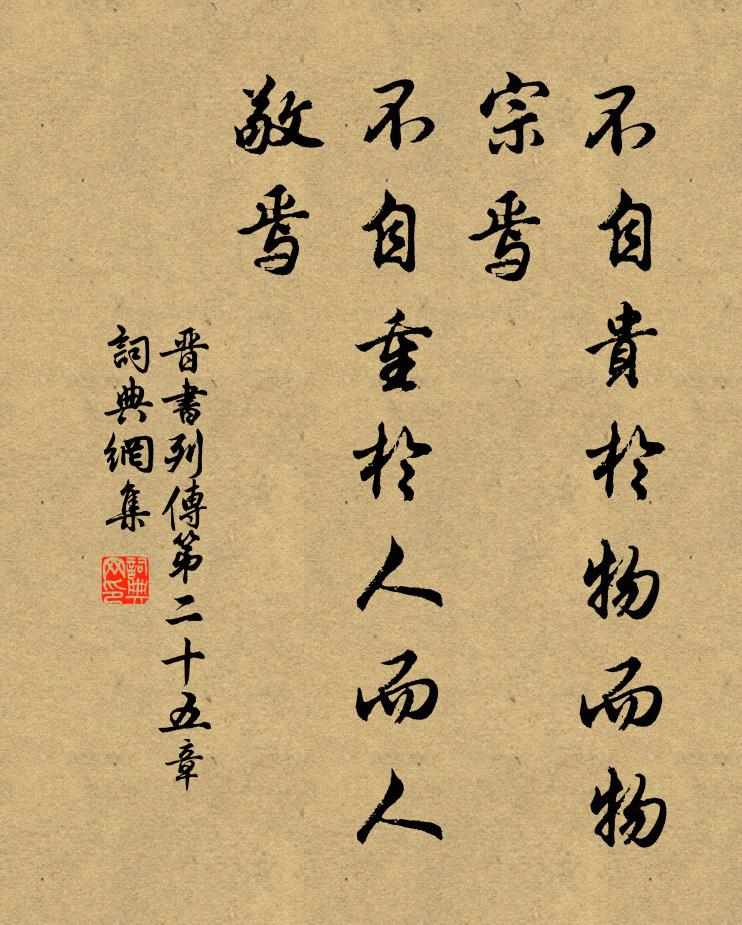 不自貴於物而物
宗焉
不自重於人而人
敬焉
晋書列傳第二十五章
詞典網集
詞典网印